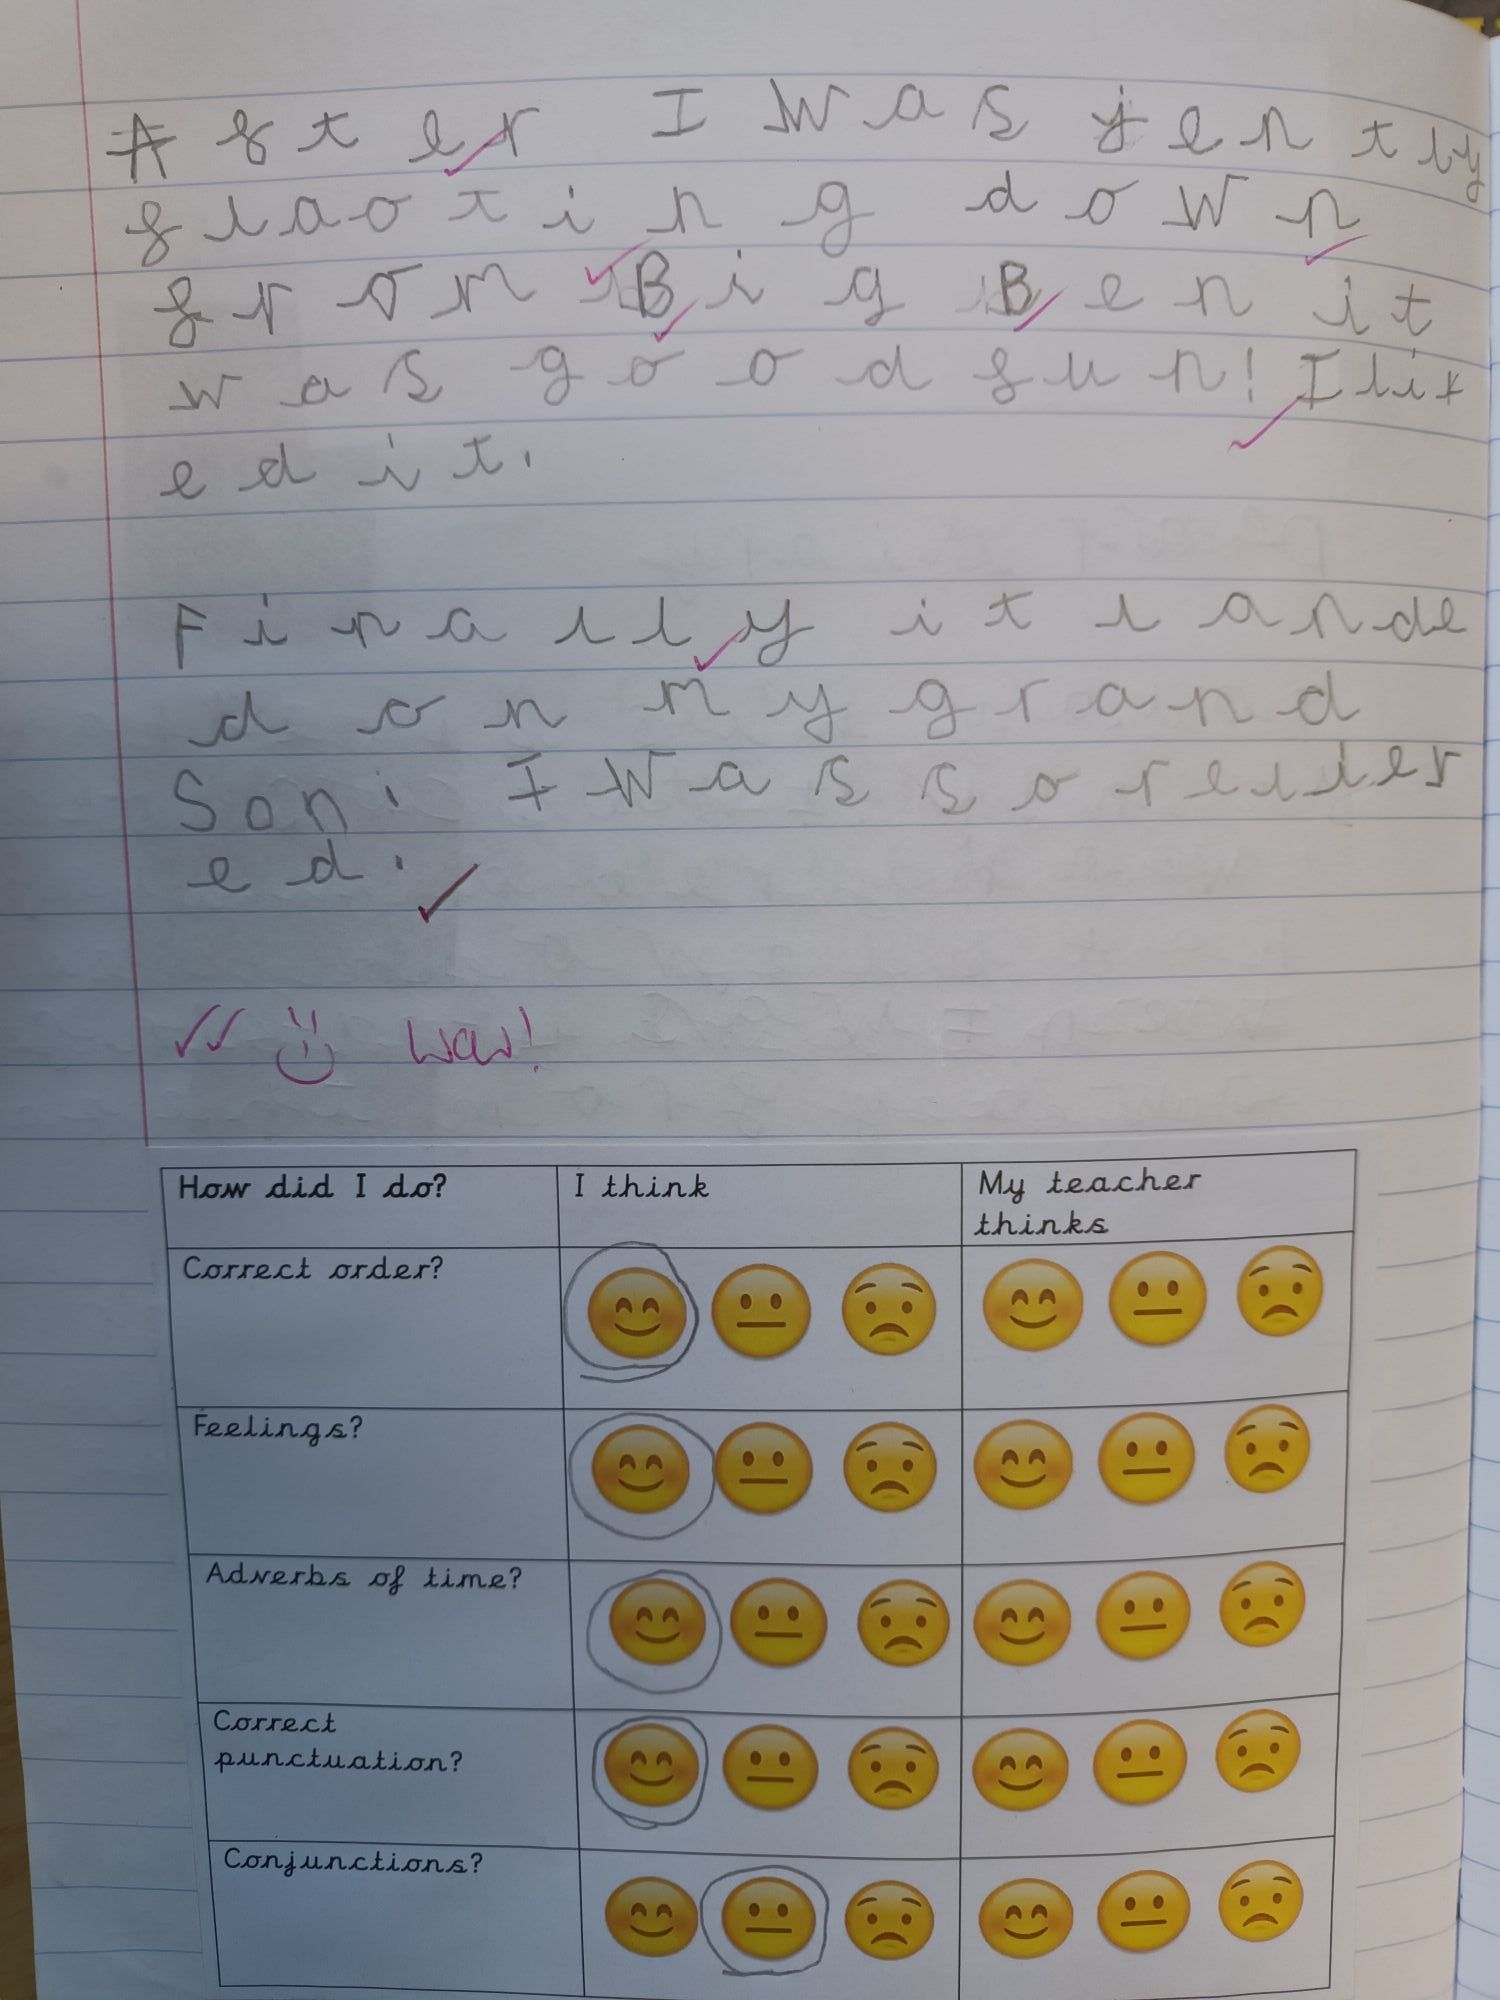 After I was jently
flaoting down
from Big Ben it
was good fun! I lik
ed it.
Finally it lande
d on my grand
Son. I was so reliev
ed.
Wow!
How did I do? I think My teacher
thinks
Correct order?
Feelings?
Adverbs of time?
Correct
punctuation?
Conjunctions?